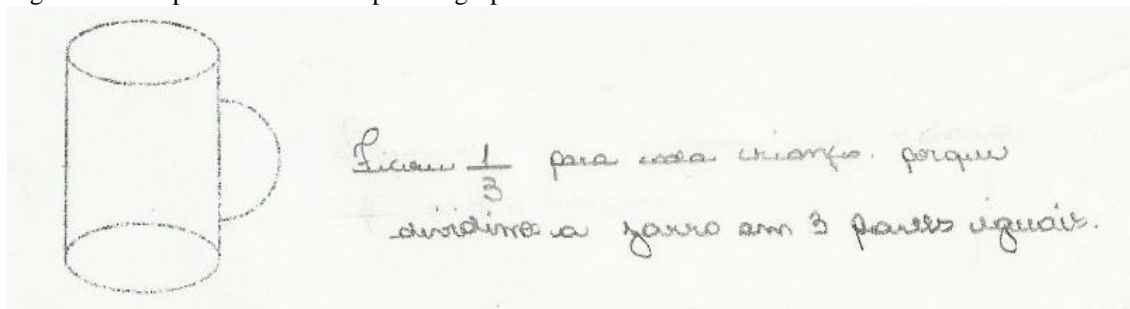 Ficou 1/3 para cada criança. porque
dividimos a jarro em 3 partes iguais.